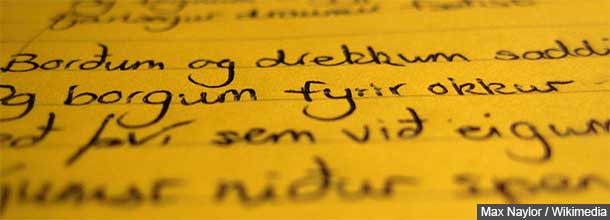 Borðum og drekkum saddi
Og borgum fyrir okkur
með því sem við eigum
niður
Max Naylor / Wikimedia